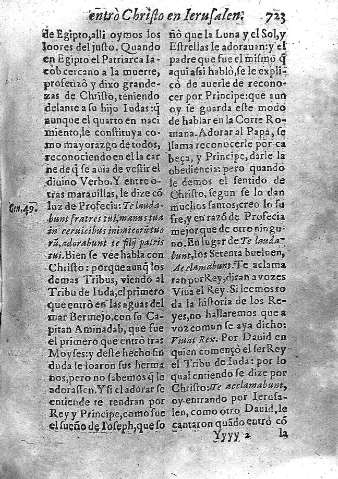 entrò Christo en Ierusalen. 723
de Egipto, alli oymos los
loores del justo. Quando
en Egipto el Patriarca Ia
cob cercano a la muerte,
profetizò y dixo grande-
zas de Christo, teniendo
delante a so hijo Iudas: q̃
aunque el quarto en naci
miento, le constituya co-
mo mayorazgo de todos,
reconociendo en el la car
ne de q̃ se auia de vestir el
diuino Verbo. Y entre o-
tras marauillas, le dize cõ
luz de Profecia: Te lauda-
Gen. 49.
bunt fratres tui, manus tua
in ceruicibus inimicorũ tuo
rũ, adorabunt te filij patris
tui. Bien se vee habla con
Christo: porque aunq̃ los
demas Tribus, viendo al
Tribu de Iuda, el primero
que entrò en las aguas del
mar Bermejo, con su Ca
pitan Aminadab, que fue
el primero que entrò tras
Moyses: y deste hecho fin
duda le loaron sus herma
nos, pero no sabemos q̃ le
adorassen. Y si el adorar se
entiende se rendran por
Rey y Principe, como fue
el sueño de Ioseph, que so
ñò que la Luna y el Sol, y
Estrellas le adorauan: y el
padre que fue el mismo q̃
aqui assi hablò, se le expli-
cò de auerle de reconocer
por Principe: que aun
oy se guarda este modo
de hablar en la Corte Ro-
mana. Adorar al Papa, se
llama reconocerle por ca
beça, y Principe, darle la
obediencia: pero quando
le demos el sentido de
Christo, segun se lo dan
muchos santos, creo lo su
fre, y en razõ de Profecia
mejor que de otro ningu
no. En lugar de Te lauda-
bunt, los Setenta bueluen,
Aclamabunt. Te aclama
ran por Rey, diran a vozes
Viua el Rey. Si leemos to
da la historia de los Re-
yes, no hallaremos que a
voz comun se aya dicho:
Viuat Rex. Por Dauid en
quien començò el ser Rey
el Tribu de Iuda: por lo
qual entiendo se dize por
Christo: Te acclamabunt,
oy entrando por Ierusa-
len, como otro Dauid, le
cantaron quãdo entrò cõ
Yyyy 2 la